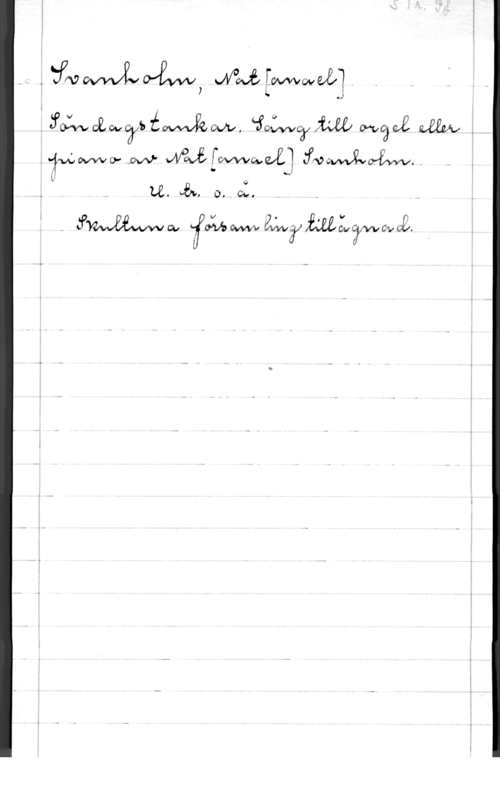 Svanholm, Nat[anael]
Söndagstankar. Sång till orgel eller
piano av Nat[anael] Svanholm.
U. tr. o. å.
Skultuna församling tillägnad.